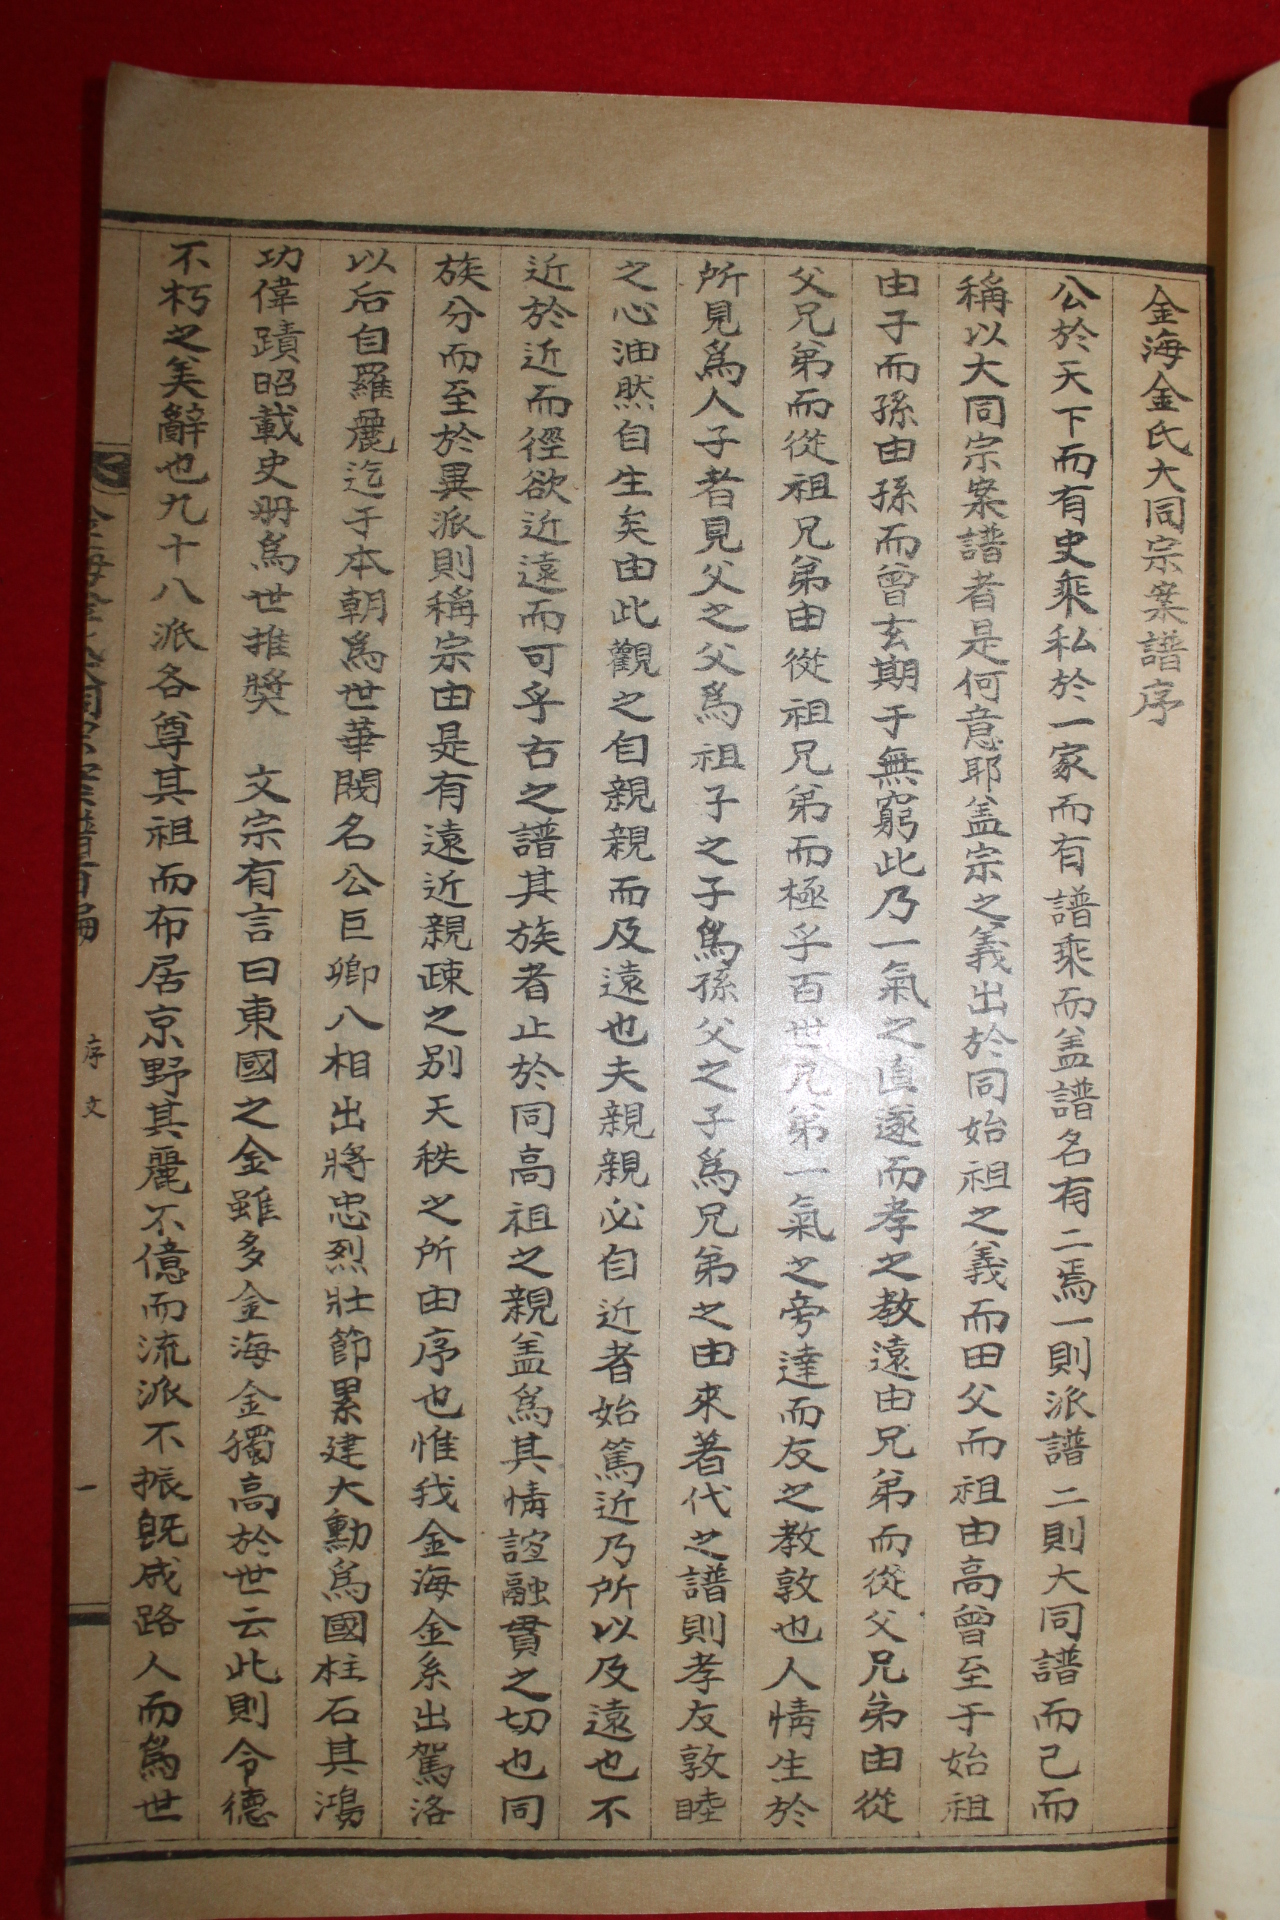 金海金氏大同宗案譜序
公於天下而有史乘私於一家而有譜乘而盖譜名有二焉一則派譜二則大同譜而已而
稱以大同宗案譜者是何意耶盖宗之義出於同始祖之義而田父而祖由高曾至于始祖
由子而孫由孫而曾玄期于無窮此乃一氣之直遂而孝之教遠由兄弟而從父兄弟由從
父兄弟而從祖兄弟由從祖兄弟而極乎百世兄弟一氣之旁達而友之教敦也人情生於
所見爲人子者見父之父爲祖子之子爲孫父之子爲兄弟之由來著代之譜則孝友敦睦
之心油然自生矣由此觀之自親親而及遠也夫親親必自近者始篤近乃所以及遠也不
近於近而徑欲近遠而可乎古之譜其族者止於同高祖之親盖爲其情誼融貫之切也同
族分而至於異派則稱宗由是有遠近親疎之別天秩之所由序也惟我金海金系出駕洛
以后自羅麗迄于本朝爲世華閥名公巨卿八相出將忠烈壯節累建大勳爲國柱石其鴻
功偉蹟昭載史册爲世推奬 文宗有言曰東國之金雖多金海金獨高於世云此則令德
不朽之美辭也九十八派各尊其祖而布居京野其麗不億而流派不振旣成路人而爲世
金海金氏大同宗案譜首編
序文
一